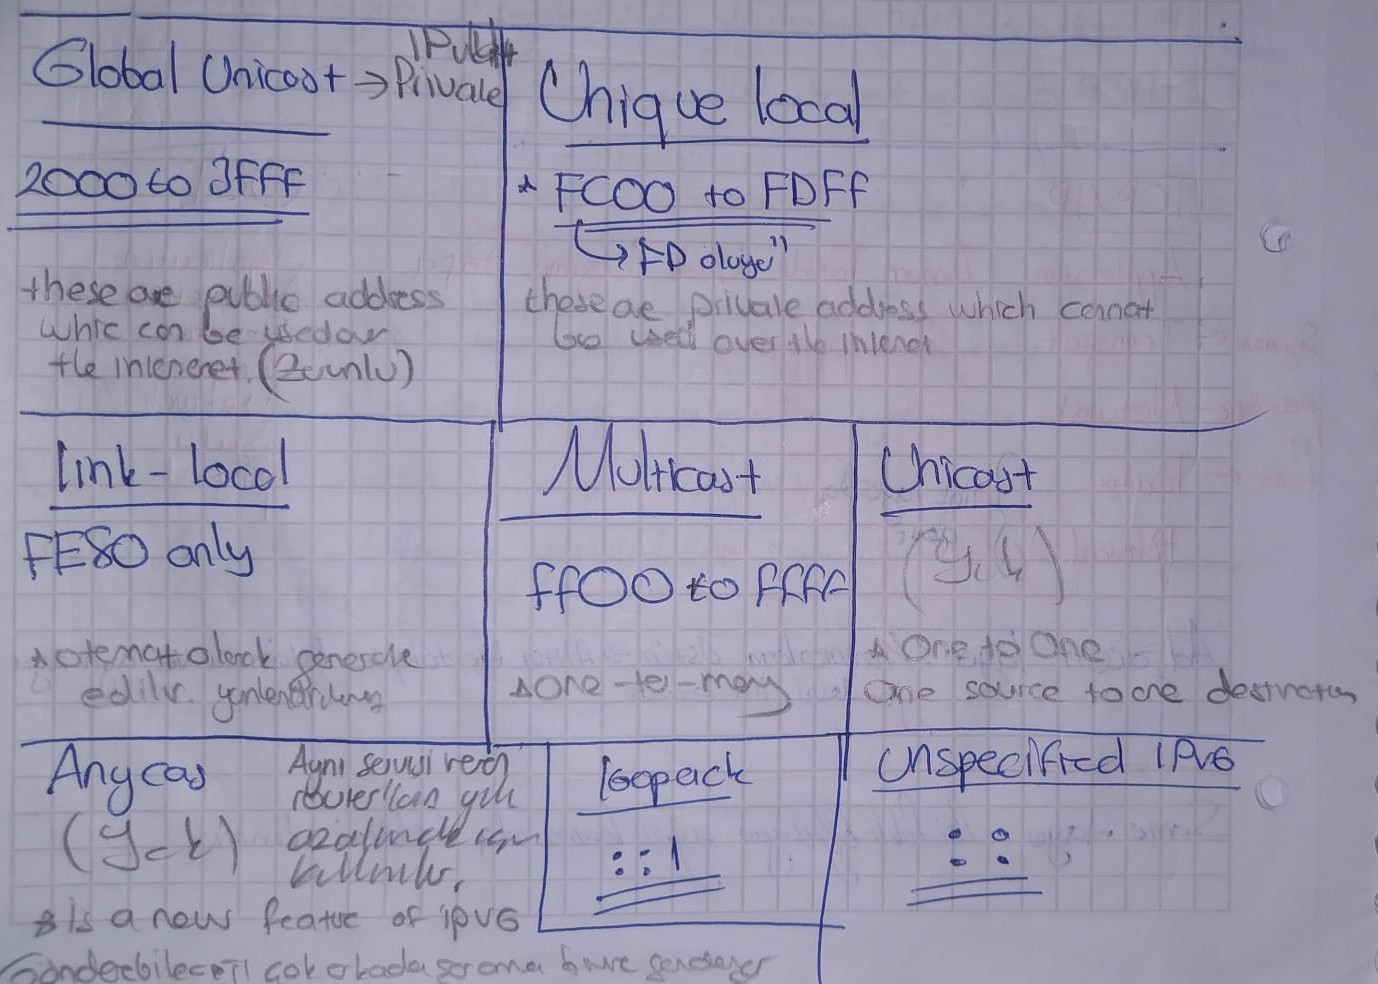 Global Unicast → Private
2000 to 3FFF
these are public address
whic can be used over
the interneret. (Zorunlu)
Unique local
* FC00 to FDFF
↳ FD
these are private address which cannot
be used over the interet
Link-local
FE80 only
* otomat olarak generate
edilir.
Multicast
FF00 to FFFF
* one-to-many
Unicast
(Yok)
* One to One
One source to one destination
Anycas
(Yok)
Aynı servisi veren
router'ların yükü
azaltmak için
kullanılır.
* is a new featue of ipv6
loopack
::1
Unspecified IPv6
::